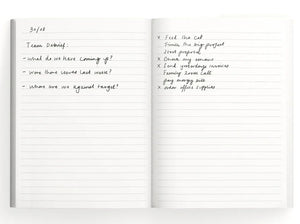 30/08
Team Debrief:
- What do we have coming up?
- Were there issues last week?
- Where are we against target?
x Feed the cat
Finish the big project
Start proposal
x Drink my
x Send yesterdays invoices
Family zoom call
pay energy bill
x order office supplies